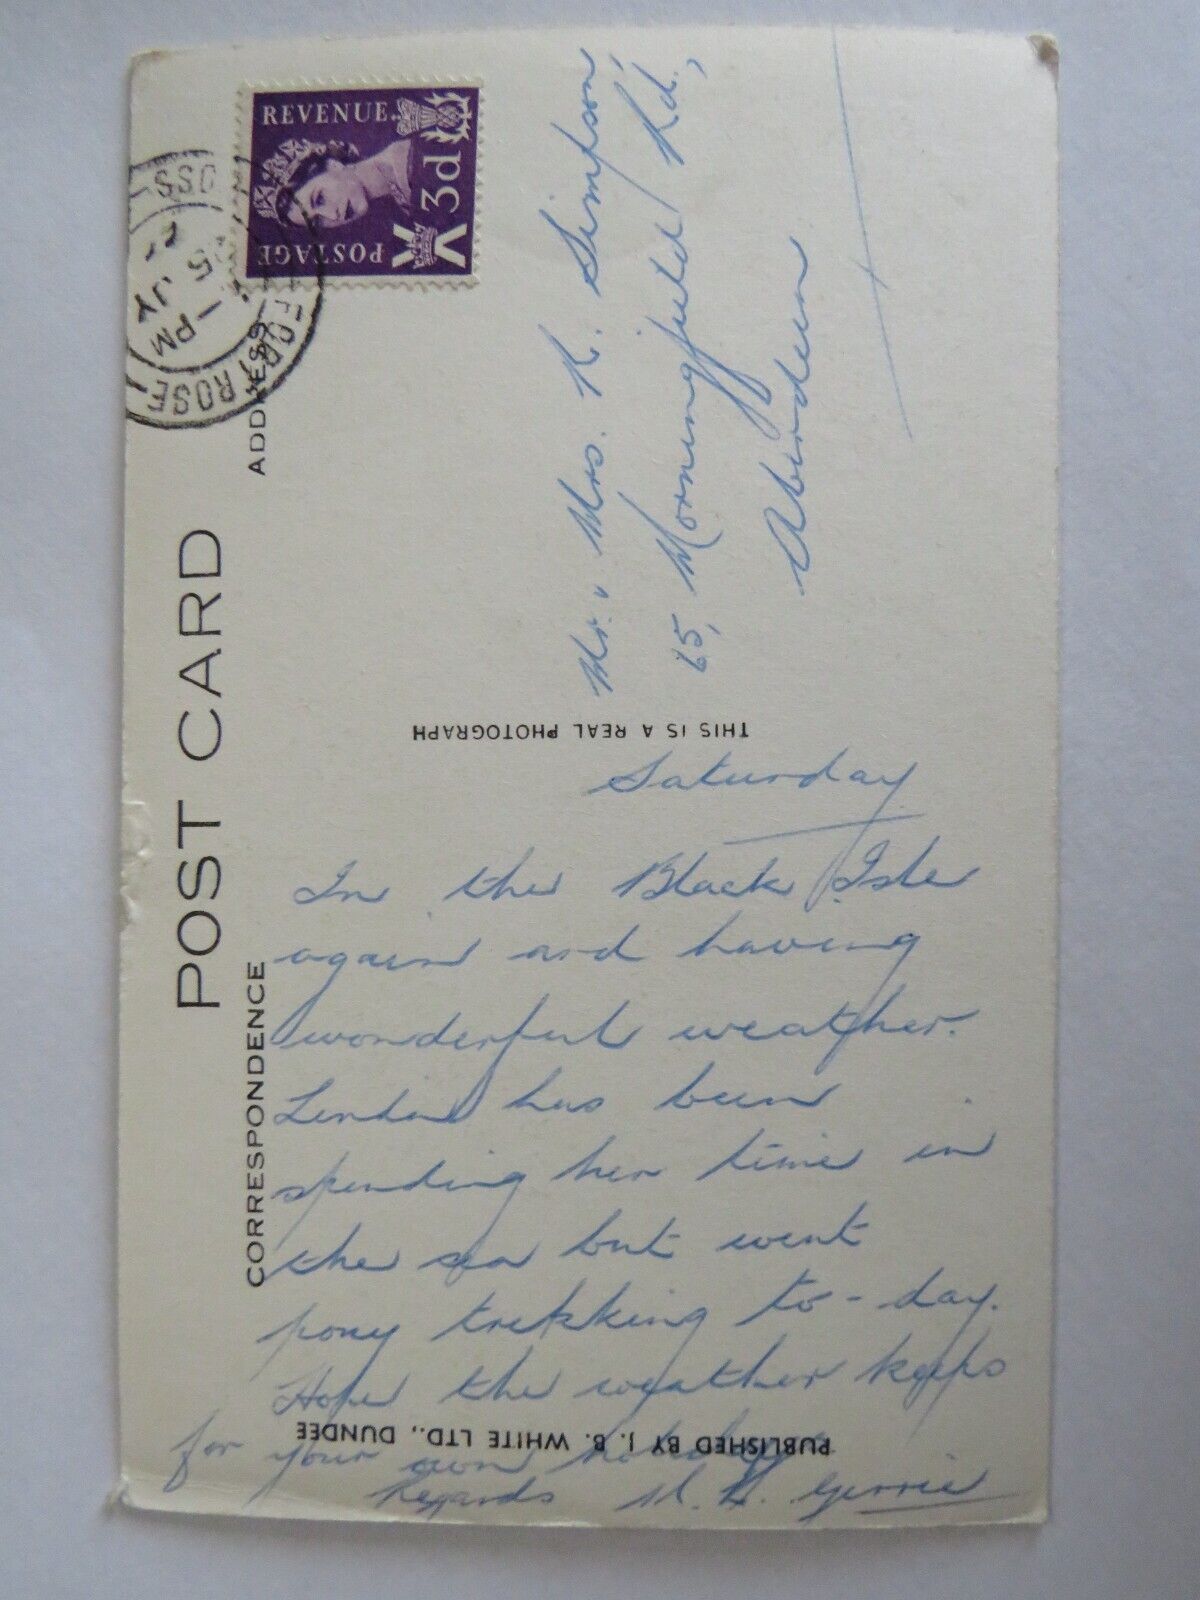 POST CARD
CORRESPONDENCE
ADDRESS
REVENUE
POSTAGE
3d
FORTROSE
PM
5 JY
ROSS
THIS IS A REAL PHOTOGRAPH
PUBLISHED BY J. B. WHITE LTD., DUNDEE
Mr. & Mrs. R. Simpson,
65, Morningfield Rd.,
Aberdeen
Saturday
In the Black Isle
again and having
wonderful weather.
Linda has been
spending her time in
the sea but went
pony trekking to-day.
Hope the weather keeps
for your own holiday
Regards Gerrie